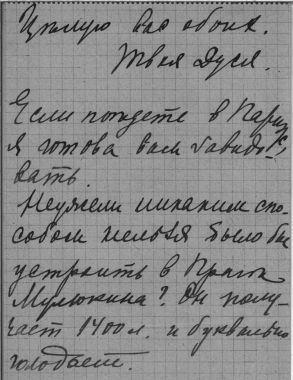 Цѣлую вас обоих.
Твоя Дуся.
Если поѣдете в Париж,
я готова вам завидо-
вать.
Неужели никаким спо-
собом нельзя было бы
устроить в Праге
Мулюкина? Он полу-
чает 1400 л. и буквально
голодает.